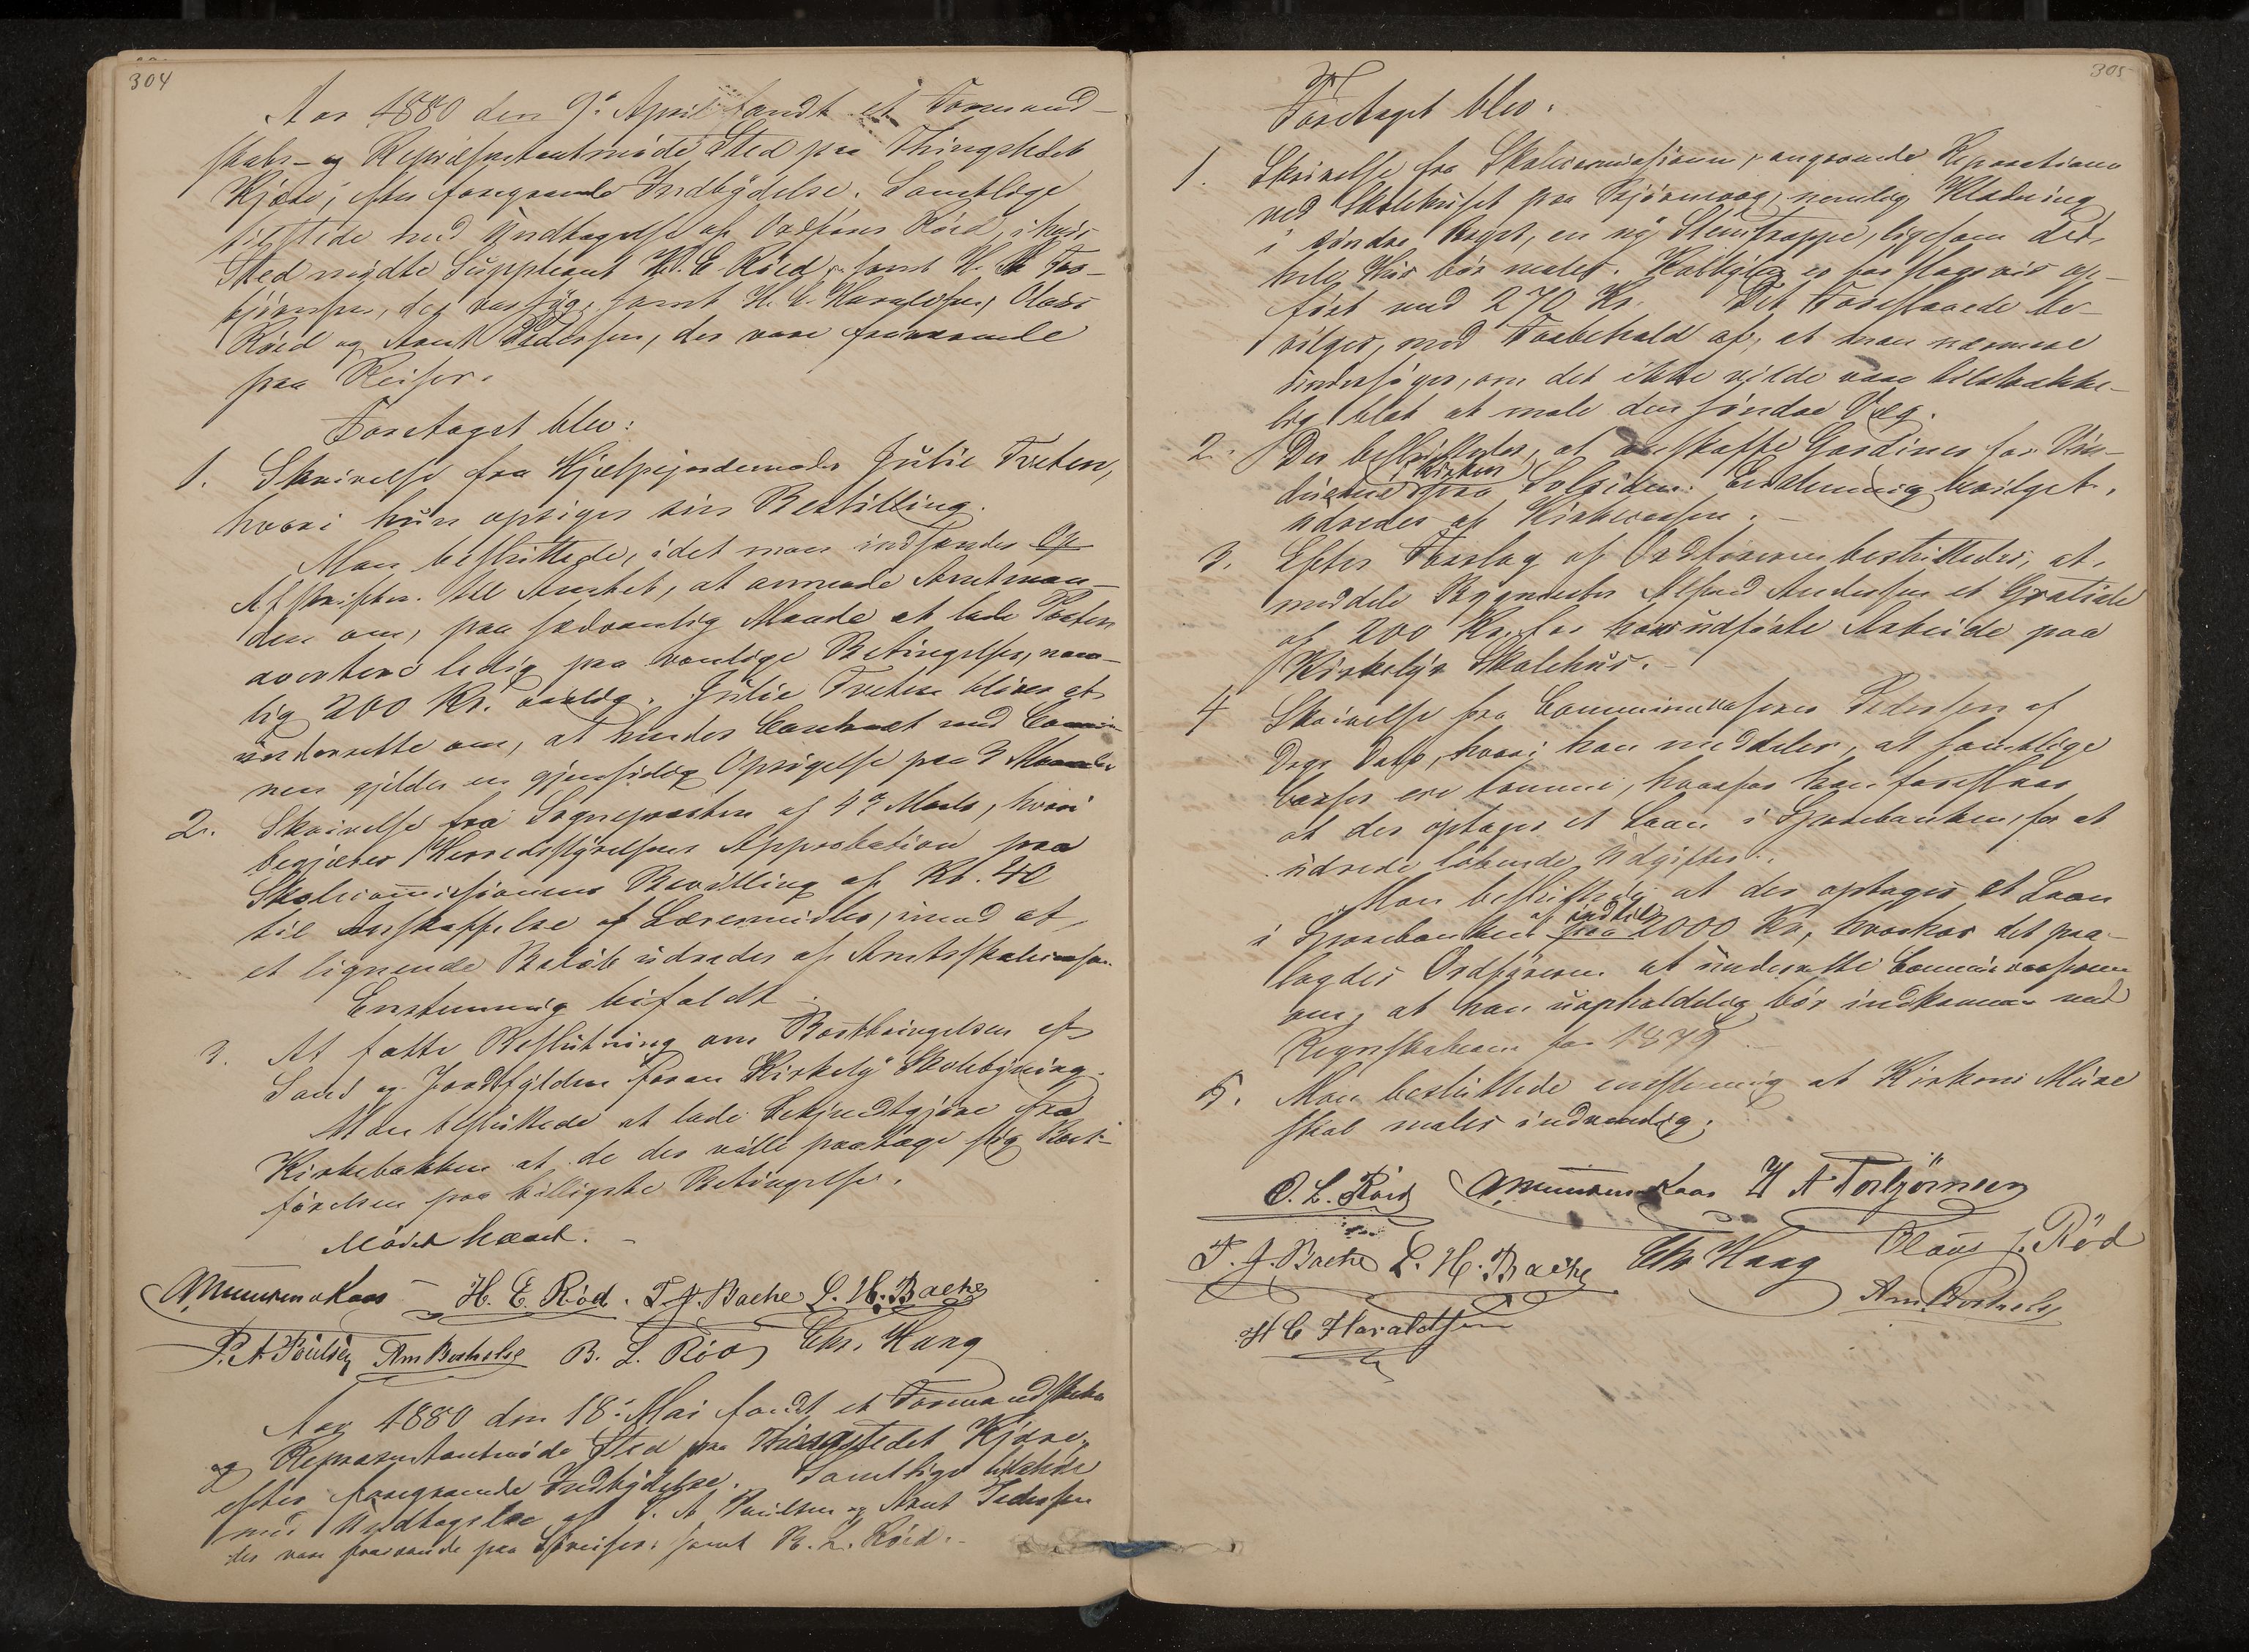 304
Aar 1880 den 9de April fandt et Formand-
skabs- og Repræsentantmøde Sted paa Thingstedet
Kjære, efter foregaaende Indbydelse. Samtlige
tilstede med Undtagelse af Ordføreren Röed, i hvis
Sted mødte Suppleant H. E. Röed, samt H. A. Tor-
björnsen, der var syg, samt H. C. Haraldsen, Olaus
Röed og Arnt Pedersen, der vare fraværende
paa Reiser.
Foretaget blev:
1. Skrivelse fra Hjælpejordemoder Julie Tveten,
hvori hun opsiger sin Bestilling.
Man besluttede, idet man indsender
Afskrifter til Amtet, at anmode Amtman-
den om, paa sædvanlig Maade at lade Posten
avertere ledig paa vanlige Betingelser, nem-
lig 200 Kr. aarlig. Julie Tveten bliver at
underrette om, at hendes Contract med Commu-
nen gjelder en gjensidig Opsigelse paa 3 Maaneder
2. Skrivelse fra Sognepræsten af 4de Marts, hvori
begjæres Herredsstyrelsens Approbation paa
Skolecommissionens Bevilling af Kr. 40
til Anskaffelse af Læremidler, imod at
et lignende Beløb udredes af Amtsskolecassen.
Enstemmig bifaldt.
3. At fatte Beslutning om Bortbringelsen af
Sand og Jordfylden foran Kirkeby Skolebygning.
Man besluttede at lade bekjendtgjøre fra
Kirkebakken at de der ville paatage sig Bort-
førelsen paa billigste Betingelse.
Mødet hævet.
Amundsen Kaas H. E. Röd. T. J. Bache L. H. Bache
P. A. Poulsen Am Borhelse B. L. Röd Chr. Haug
Aar 1880 den 18de Mai fandt et Formandskabs
og Repræsentantmøde Sted paa Thingstedet Kjære,
efter foregaaende Indbydelse. Samtlige tilstede
med Undtagelse af P. A. Poulsen og Arnt Pedersen
der vare fraværende paa Söreiser, samt B. L. Röed.
305
Foretaget blev:
1. Skrivelse fra Skolecommissionen, angaaende Reparationer
ved Skolehuset paa Bjørnevaag, nemlig Klædning
i søndre Væg, en ny Stentrappe, ligesom det
hele Hus bør males. Udbygning er forslagsvis op-
ført med 270 Kr. Det Foreslaaede be-
vilges, med Forbehold af, at man nærmere
undersøger, om det ikke vilde være tilstrække-
lig blot at male den søndre Væg.
2. Der besluttedes, at anskaffe Gardiner for Vin-
duerne i Kirken paa Solsiden. Enstemmig bevilget.
Udredes af Kirkecassen.
3. Efter Forslag af Ordføreren besluttedes, at
meddele Bygmester Alfred Andersen et Gratiale
af 200 Kr. for hans udførte Arbeide paa
Kirkeby Skolehus.
4 Skrivelse fra Communecasserer Pedersen af
Dags Dato, hvori han meddeler, at samtlige
Casser ere tomme, hvorfor han foreslaar
at der optages et Laan i Sparebanken, for at
udrede løbende Udgifter.
Man besluttede at der optages et Laan
i Sparebanken af indtil 2000 Kr, hvorhos det paa-
lagdes Ordføreren at underrette Communecassereren
om, at han uopholdelig bør indkomme med
Regnskaberne for 1879.
5. Man besluttede enstemmig at Kirkens Mure
skal males indvendig.
O. L. Röed Amundsen Kaas H A Torbjörnsen
T. J. Bache L. H. Bache Chr Haug Olaus J. Röd
Am Borhelse
H C Haraldsen